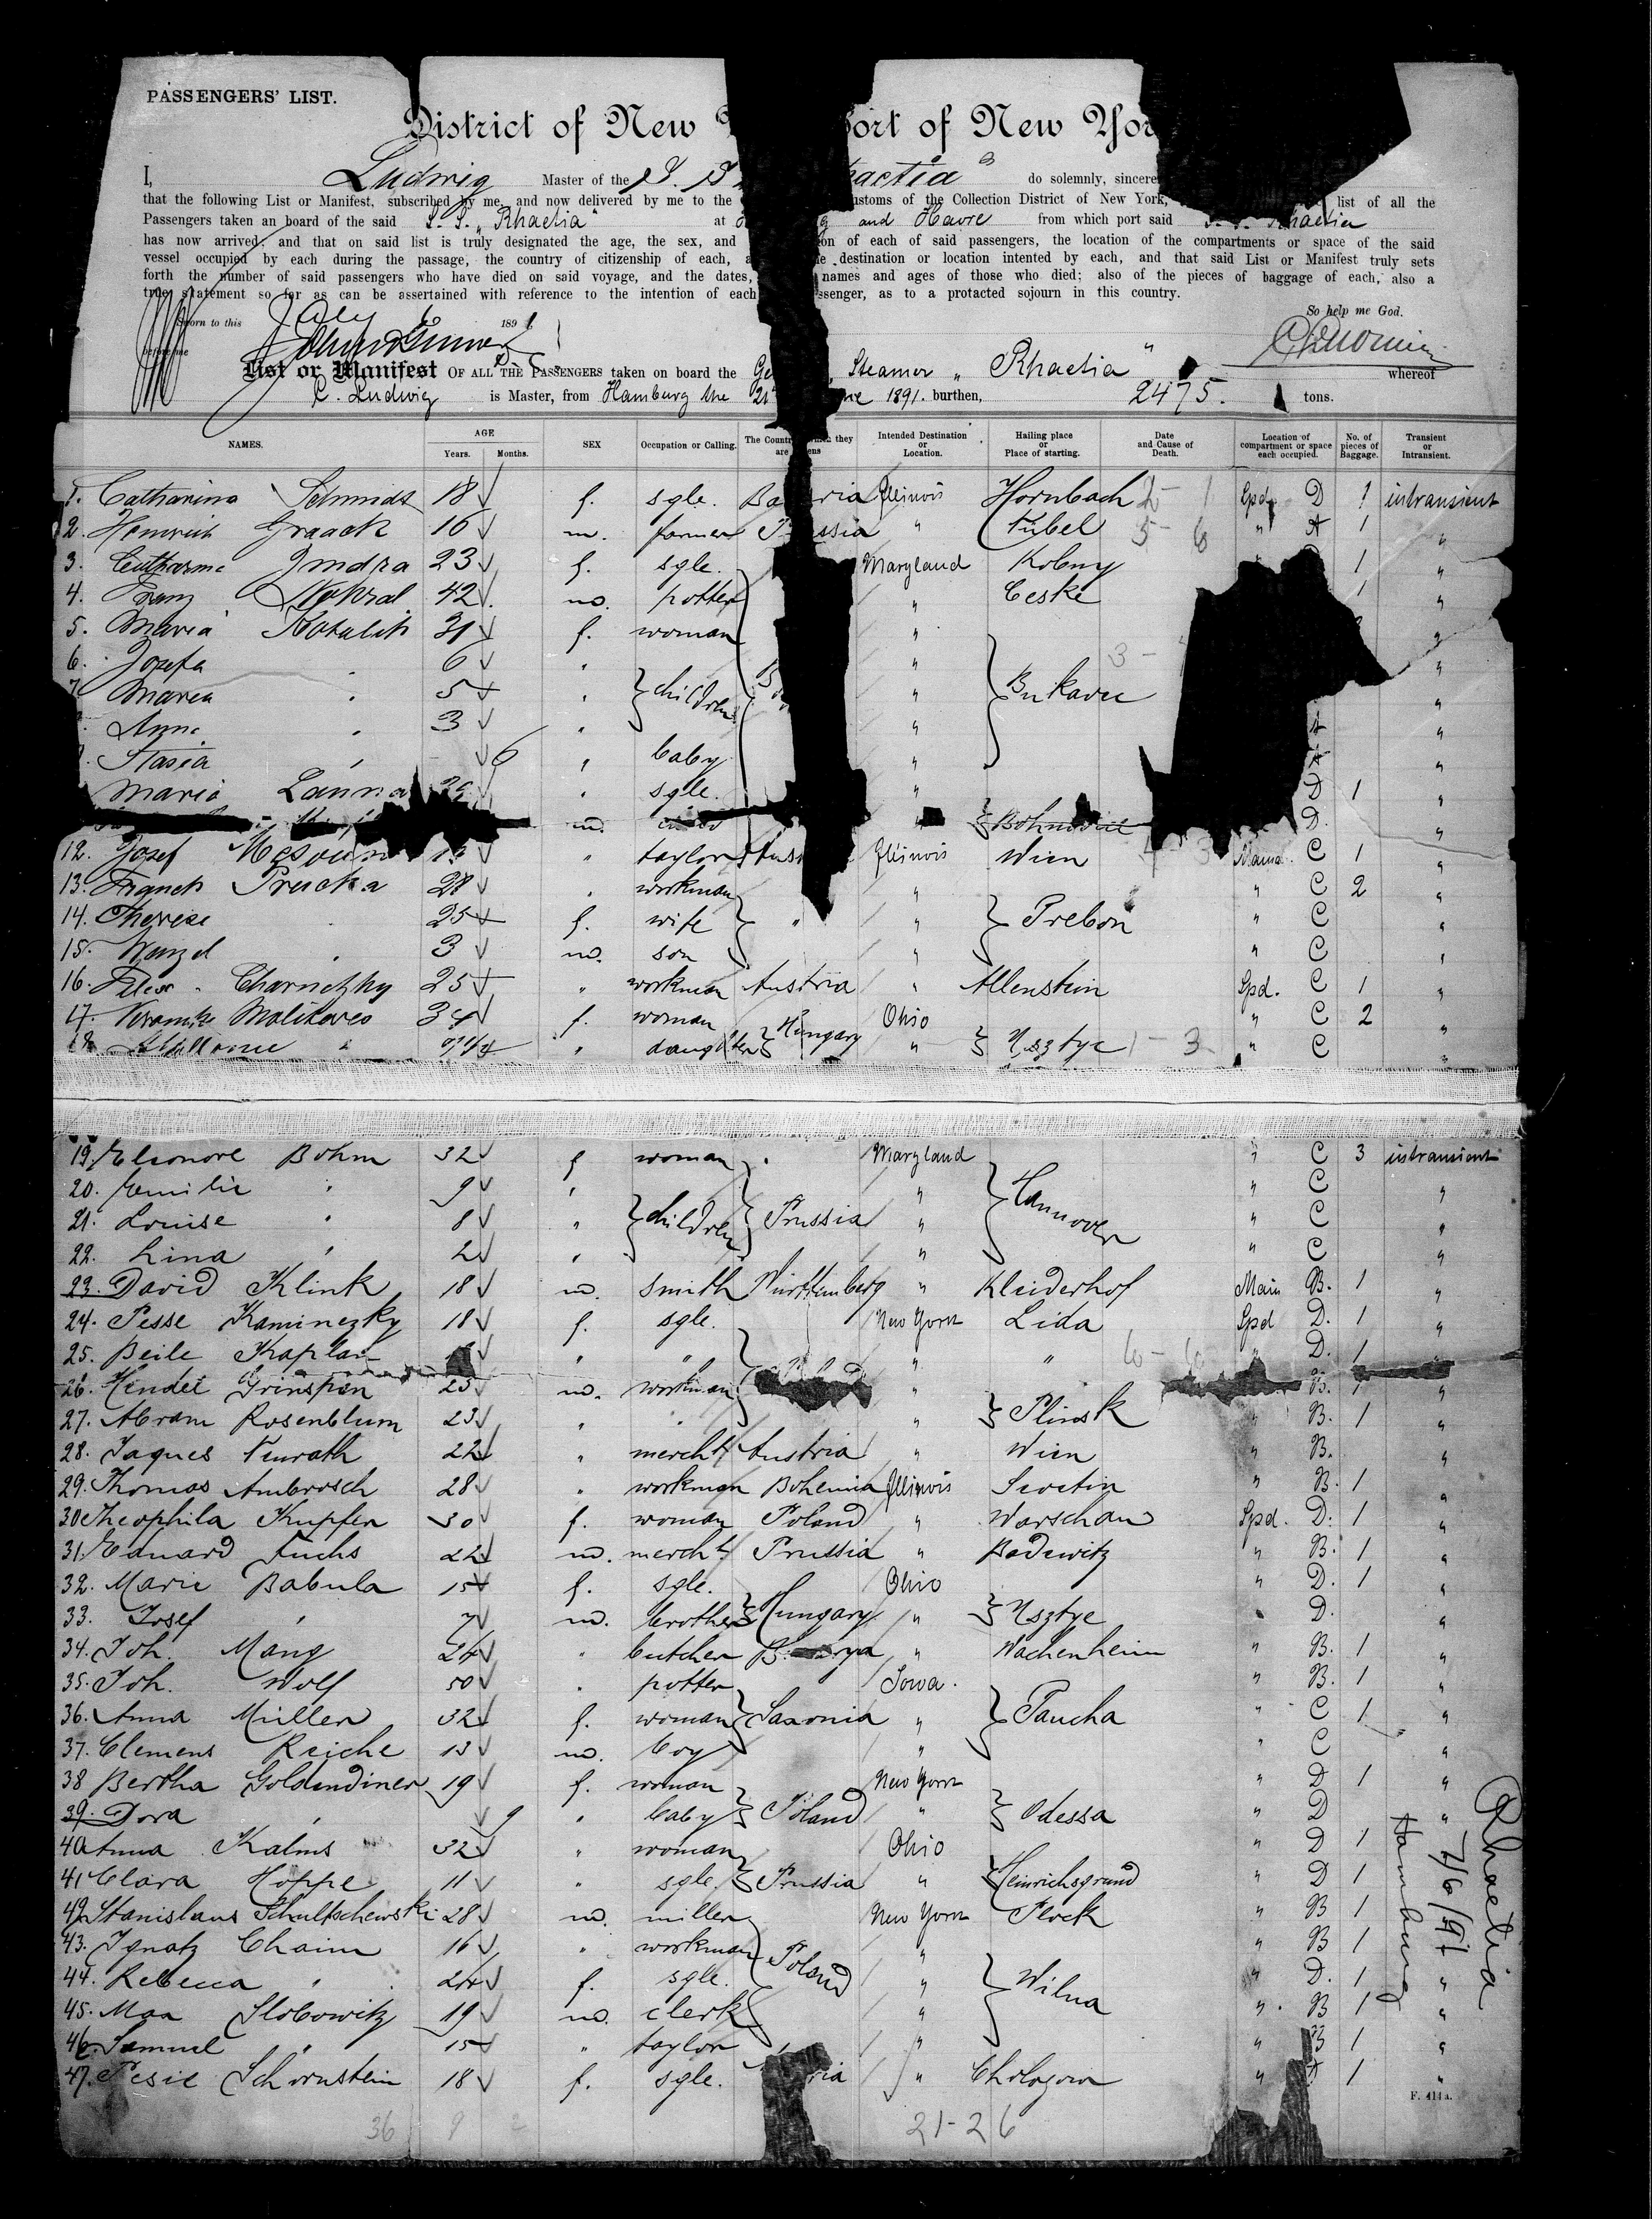 PASSENGERS' LIST.
District of New ort of New Yor
I, Ludwig Master of the S. S. haetia" do solemnly, sincere
that the following List or Manifest, subscribed by me, and now delivered by me to the ustoms of the Collection District of New York, list of all the
Passengers taken an board of the said S. S. „Rhaetia" at and Havre from which port said S. S. Rhaetia
has now arrived; and that on said list is truly designated the age, the sex, and on of each of said passengers, the location of the compartments or space of the said
vessel occupied by each during the passage, the country of citizenship of each, a e destination or location intented by each, and that said List or Manifest truly sets
forth the number of said passengers who have died on said voyage, and the dates, names and ages of those who died; also of the pieces of baggage of each, also a
true statement so far as can be assertained with reference to the intention of each ssenger, as to a protacted sojourn in this country.
So help me God.
Sworn to this July 6 1891
before me
List or Manifest OF ALL THE PASSENGERS taken on board the Ge Steamer „ Rhaetia " whereof
C. Ludwig is Master, from Hamburg the 21 ne 1891. burthen, 2475. tons.
NAMES. AGE Years. Months. SEX Occupation or Calling. The Countr they are ens Intended Destination or Location. Hailing place or Place of starting. Date and Cause of Death. Location of compartment or space each occupied. No. of pieces of Baggage. Transient or Intransient.
1. Catharina Schmidt 18 f. sgle. Ba ria Illinois Hornbach 2- 1 Spd. D 1 intransient
2. Heinrich Graack 16 m. farmer P ssia " Kübel 5- 6 " A 1 "
3. Catharina Indra 23 f. sgle. Maryland Kolmy 1 "
4. Franz 42 m. potter " Ceske "
5. Maria Kotalik 31 f. woman " "
6. Josefa " 6 " " "
7 Maria " 5 " children " Bukavec "
Anna " 3 " " A "
Stasia " 6 " baby " A "
Maria Lanna 29 " sgle. " D 1 "
m. " D. "
12. Josef " taylor Aus Illinois Wien C 1 "
13. Franck Prucka 28 " workman " " C 2 "
14. Therese 25 f. wife " " Trebon " C "
15. Wenzel " 3 m. son " " C "
16. Charnetzky 25 " workman Austria " Allenstein Spd. C 1 "
17. Malikoves 34 f. woman Hungary Ohio " C 2 "
18. " " daughter " Usztye 1- 3 " C "
19. Eleonore Bohm 32 f woman Maryland " C 3 intransient
20. Emilie " 9 " " " C "
21. Louise " 8 " children Prussia " Hannover " C "
22. Lina " 2 " " " C "
23. David Klink 18 m. smith Württemberg " Kleiderhof Main B. 1 "
24. Pesse Kaminezky 18 f. sgle. New York Lida Spd D. 1 "
25. Beile Kaplan " " " " 6- " D. 1 "
26. Hendel Grinspan 25 m. workman " B. 1 "
27. Abram Rosenblum 23 " " " Plinsk " B. 1 "
28. Jaques Neurath 22 " mercht Austria " Wien " B. "
29. Thomas Ambrosch 28 " workman Bohemia Illinois " B. 1 "
30 Theophila Kupfer 30 f. woman Poland " Warschau Spd. D. 1 "
31. Eduard Fuchs 22 m. mercht Prussia " Badewitz " B. 1 "
32. Marie Babula 15 f. sgle. Ohio " D. 1 "
33. Josef " 7 m. brother Hungary " Usztye " D. "
34. Joh. Mang 24 " butcher B " Wachenheim " B. 1 "
35. Joh. Wolf 50 " potter Iowa. " B. 1 "
36. Anna Müller 32 f. woman Saxonia " Taucha " C 1 "
37. Clemens Reiche 13 m. boy " " C "
38 Bertha Goldendiner 19 f. woman New York " D 1 "
39. Dora " 9 " baby Poland " Odessa " D "
40 Anna Kalms 32 " woman Ohio " D 1 "
41 Clara Hoppe 11 " sgle. Prussia " Heinrichsgrund " D 1 "
42 Stanislaus Schultschewski 28 m. miller New York Plock " B 1 "
43. Ignatz Chaim 16 " workman Poland " " B 1 "
44. Rebecca " 24 f. sgle. " Wilna " D. 1 "
45. Max Slobowitz 19 m. clerk " " B 1 "
46. Samuel " 15 " taylor " " B 1 "
47. Pesie Schornstein 18 f. sgle. ria " Chologow " A 1 "
F. 414a.
36 9 2 21-26
Rhaetia
7/6/91
Hamburg